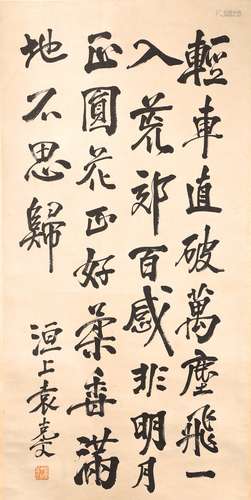 輕車直破萬塵飛一
入荒郊百感非明月
正圓花正好葉香滿
地不思歸
洹上袁克文